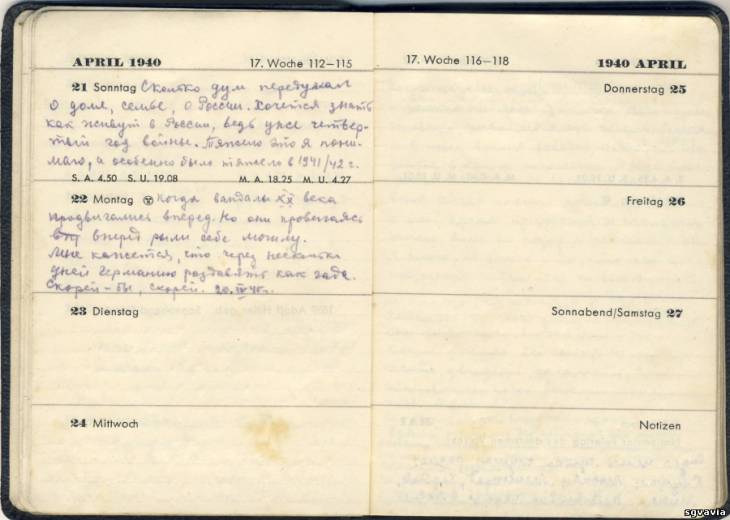 APRIL 1940 17. Woche 112—115
21 Sonntag Сколько дум передумал
о доме, семье, о России. Хочется знать
как живут в России, ведь уже четвер-
тый год войны. Тяжело это я пони-
маю, а особенно было тяжело в 1941/42 г.
S. A. 4.50 S. U. 19.08 M. A. 18.25 M. U. 4.27
22 Montag когда вандалы XX века
продвигались вперед. Но они продвигаясь
вперед рыли себе могилу.
Мне кажется, что через несколько
дней Германию раздавять как гада.
Скорей-бы, скорей. 20.IV 45г.
23 Dienstag
24 Mittwoch
17. Woche 116—118 1940 APRIL
Donnerstag 25
Freitag 26
Sonnabend/Samstag 27
Notizen
sgvavia